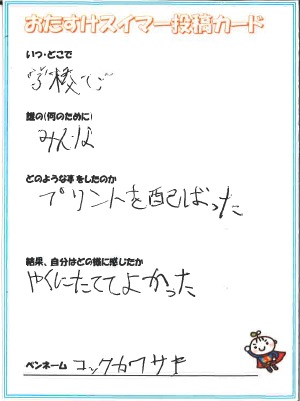 おたすけスイマー投稿カード
いつ・どこで
学校で
誰の(何のために)
みんな
どのような事をしたのか
プリントを配ばった
結果、自分はどの様に感じたか
やくにたててよかった
ペンネーム コックカワサキ